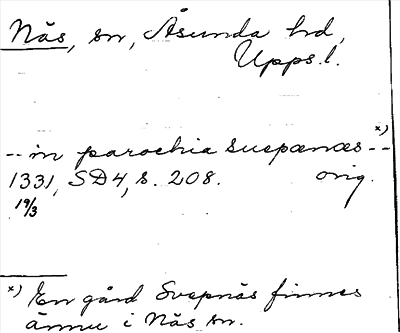 Näs, sn, Åsunda hd,
Upps. l.
-- in parochia suepænæs --*)
1331, SD4, s. 208. orig.
19/3
*) En gård Svepnäs finnes
ännu i Näs sn.